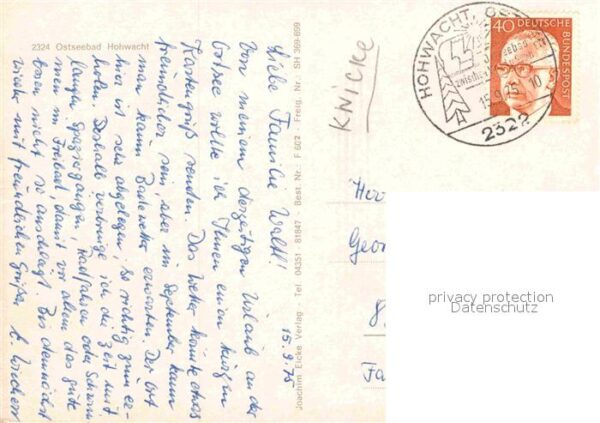 2324 Ostseebad Hohwacht
15.9.75
Liebe Familie Walk!
Von meinem derzeitigen Urlaub an der
Ostsee wollte ich Ihnen einen kurzen
Kartengruß senden. Das Wetter könnte etwas
freundlicher sein, aber im September kann
man kaum Badewetter erwarten. Der Ort
hier ist sehr abgelegen, so richtig zum er-
holen. Deshalb verbringe ich die Zeit mit
langen Spaziergängen, Radfahren oder Schwim-
men im Freibad, damit vor allem das gute
Essen nicht so anschlägt. Bis demnächst
wieder mit freundlichen Grüßen
Joachim Eicke Verlag · Tel. 04351 81847 Best. Nr.: F 602 Freig. Nr.: SH 369-699
KNICKE
HOHWACHT, OST
zwischen
15.9.75.10
2322
40
DEUTSCHE
BUNDESPOST
Herr
Geor
8
Fa
privacy protection
Datenschutz